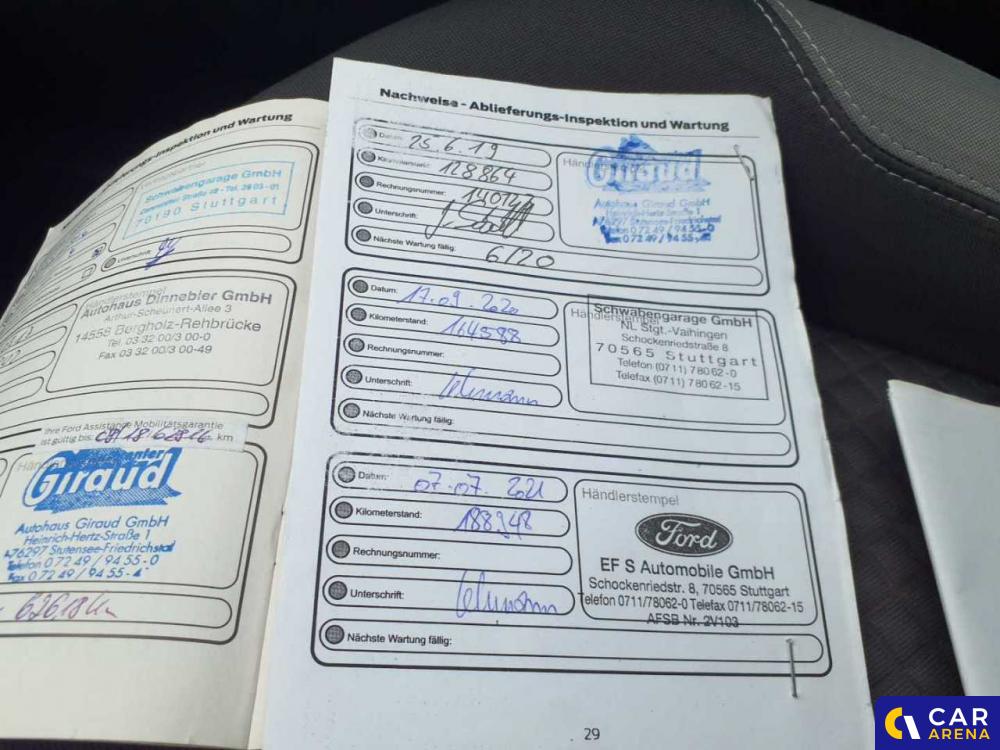 Inspektion und Wartung
Schwabengarage GmbH
70190 Stuttgart
Unterschrift:
Händlerstempel
Autohaus Dinnebier GmbH
Arthur-Scheunert-Allee 3
14558 Bergholz-Rehbrücke
Tel. 03 32 00/3 00-0
Fax 03 32 00/3 00-49
Ihre Ford Assistance Mobilitätsgarantie
ist gültig bis: km
Giraud
Autohaus Giraud GmbH
Heinrich-Hertz-Straße 1
76297 Stutensee-Friedrichstal
Telefon 0 72 49 / 94 55-0
Fax 0 72 49 / 94 55-
62618 Km
Nachweise - Ablieferungs-Inspektion und Wartung
Datum: 25.6.19
Kilometerstand: 128864
Rechnungsnummer:
Unterschrift:
Nächste Wartung fällig: 6/20
Giraud
Autohaus Giraud GmbH
Heinrich-Hertz-Straße 1
76297 Stutensee-Friedrichstal
Telefon 0 72 49 / 94 55-0
Fax 0 72 49 / 94 55-
Datum: 17.09.2020
Kilometerstand: 164588
Rechnungsnummer:
Unterschrift:
Nächste Wartung fällig:
Schwabengarage GmbH
Händlerstempel
NL Stgt.-Vaihingen
Schockenriedstraße 8
70565 Stuttgart
Telefon (0711) 780 62-0
Telefax (0711) 780 62-15
Datum: 07.07.2021
Kilometerstand: 188948
Rechnungsnummer:
Unterschrift:
Nächste Wartung fällig:
Händlerstempel
Ford
EF S Automobile GmbH
Schockenriedstr. 8, 70565 Stuttgart
Telefon 0711/78062-0 Telefax 0711/78062-15
AFSB Nr. 2V103
29
CAR
ARENA